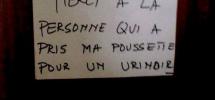 MERCI À LA
PERSONNE QUI A
PRIS MA POUSSETTE
POUR UN URINOIR